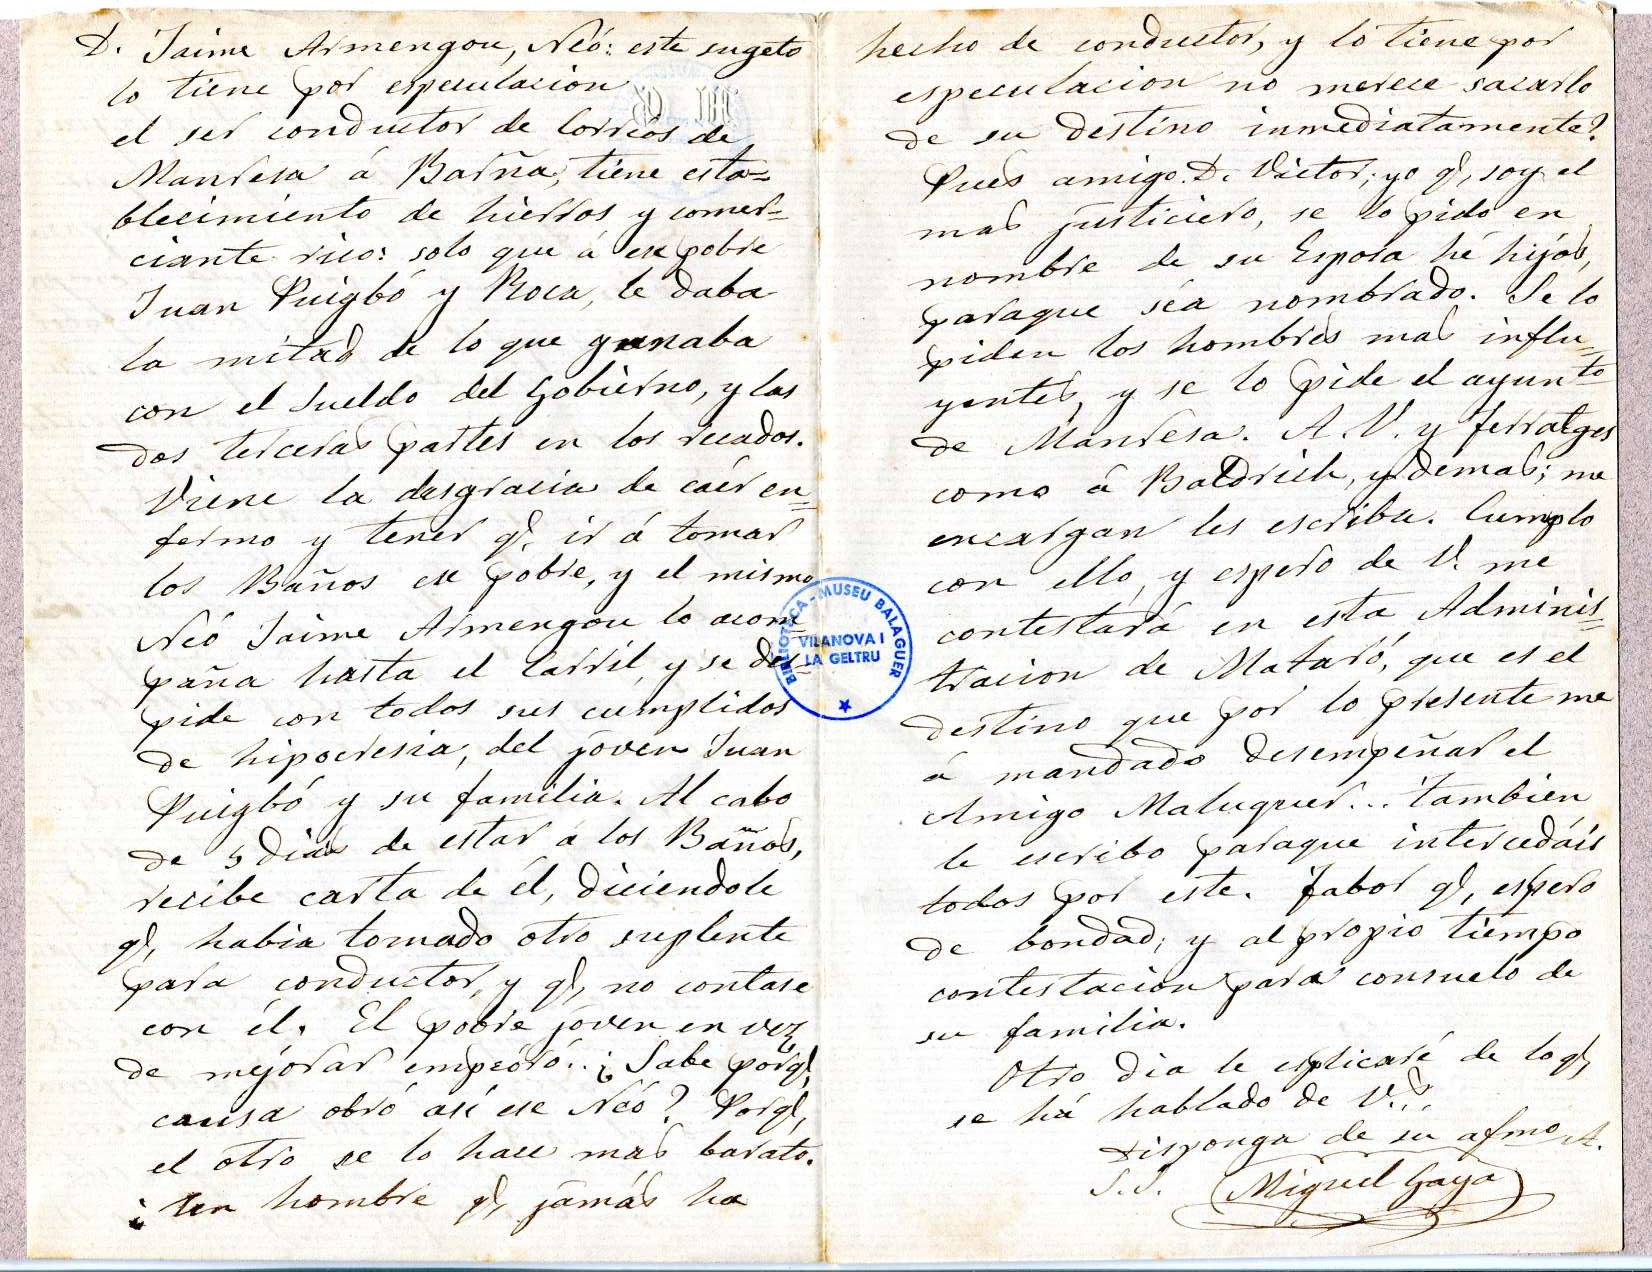 D. Jaime Armengou, Neó: este sugeto
lo tiene por especulacion
el ser conductor de Correos de
Manresa á Barña, tiene esta=
blecimiento de hierros y comer=
ciante rico: solo que á ese pobre
Juan Puigbó y Roca, le daba
la mitad de lo que ganaba
con el Sueldo del Gobierno, y las
dos terceras partes en los recados.
Viene la desgracia de cáer en=
fermo y tener q', ir á tomar
los Baños ese pobre, y el mismo
Neó Jaime Armengou lo acom=
paña hasta el Carríl, y se des=
pide con todos sus cumplidos
de hipocresia, del joven Juan
Puigbó y su familia. Al cabo
de 5 dias de estar á los Baños,
recibe carta de él, diciendole
q', habia tomado otro suplente
para conductor, y q', no contase
con él. El pobre joven en vez
de mejorar empeóró.. ¿Sabe porq',
causa obró así ese Neó? Porq',
el otro se lo hace mas barato.
¿un hombre q', jamás ha
hecho de conductor, y lo tiene por
especulacion no merece sacarlo
de su destino inmediatamente?
Pues amigo D. Victor; yo q', soy el
mas justiciero, se lo pido en
nombre de su Esposa hé hijos,
paraque séa nombrado. Se lo
piden los hombres mas influ=
yentes, y se lo pide el ayunto
de Manresa. A V. y Ferratges
como á Baldrich, y demas; me
encargan les escriba. Cumplo
con ello, y espero de V. me
contestará en esta Adminis=
tracion de Mataró, que es el
destino que por lo presente me
á mandado desempeñar el
Amigo Maluquer... tambien
le escribo paraque intercedáis
todos por este. Fabor q', espero
de bondad; y al propio tiempo
contestacion para consuelo de
su familia.
Otro dia le esplicaré de lo q',
se há hablado de V...
Disponga de su afmo A.
S.S. Miguel Gaya
BIBLIOTECA-MUSEU BALAGUER
VILANOVA I
LA GELTRU